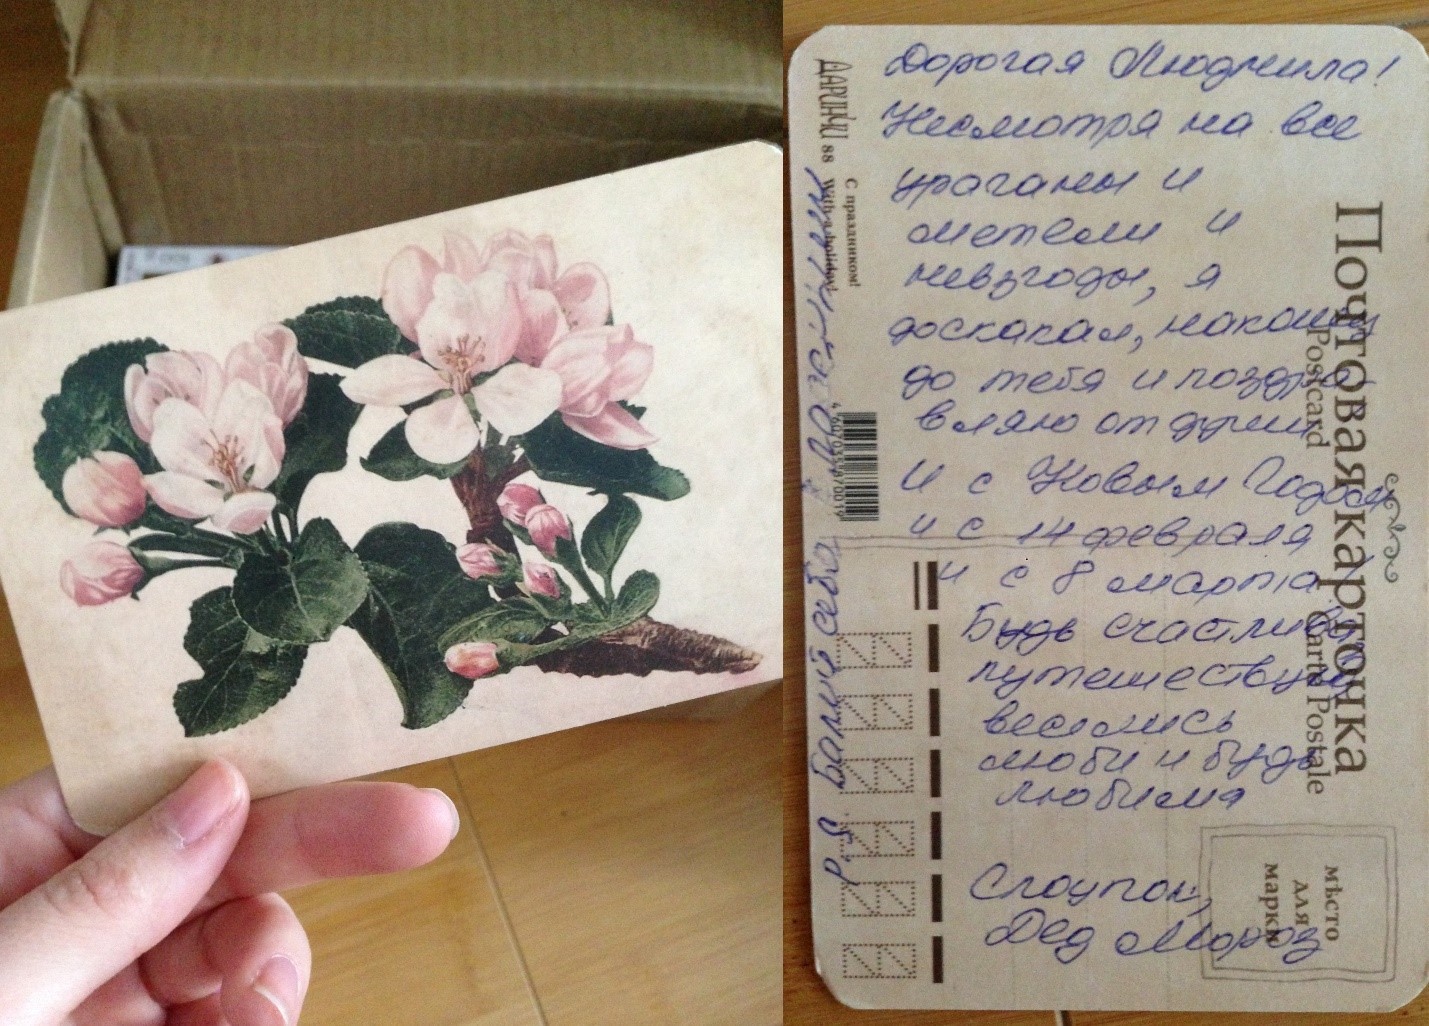 Дорогая Людмила!
Несмотря на все
ураганы и
метели и
невзгоды, я
доскакал, наконец
до тебя и поздра-
вляю от души
И с Новым Годом
и с 14 февраля
и с 8 марта
Будь счастлива
путешествуй
веселись
люби и будь
любима
Слоупок,
Дед Мороз
P.S Балуй себя
ДАРИНЧИ 88
С праздником!
With a holiday!
4 607035 870019
Почтовая карточка
Postcard
Carte Postale
мѣсто
для
марки